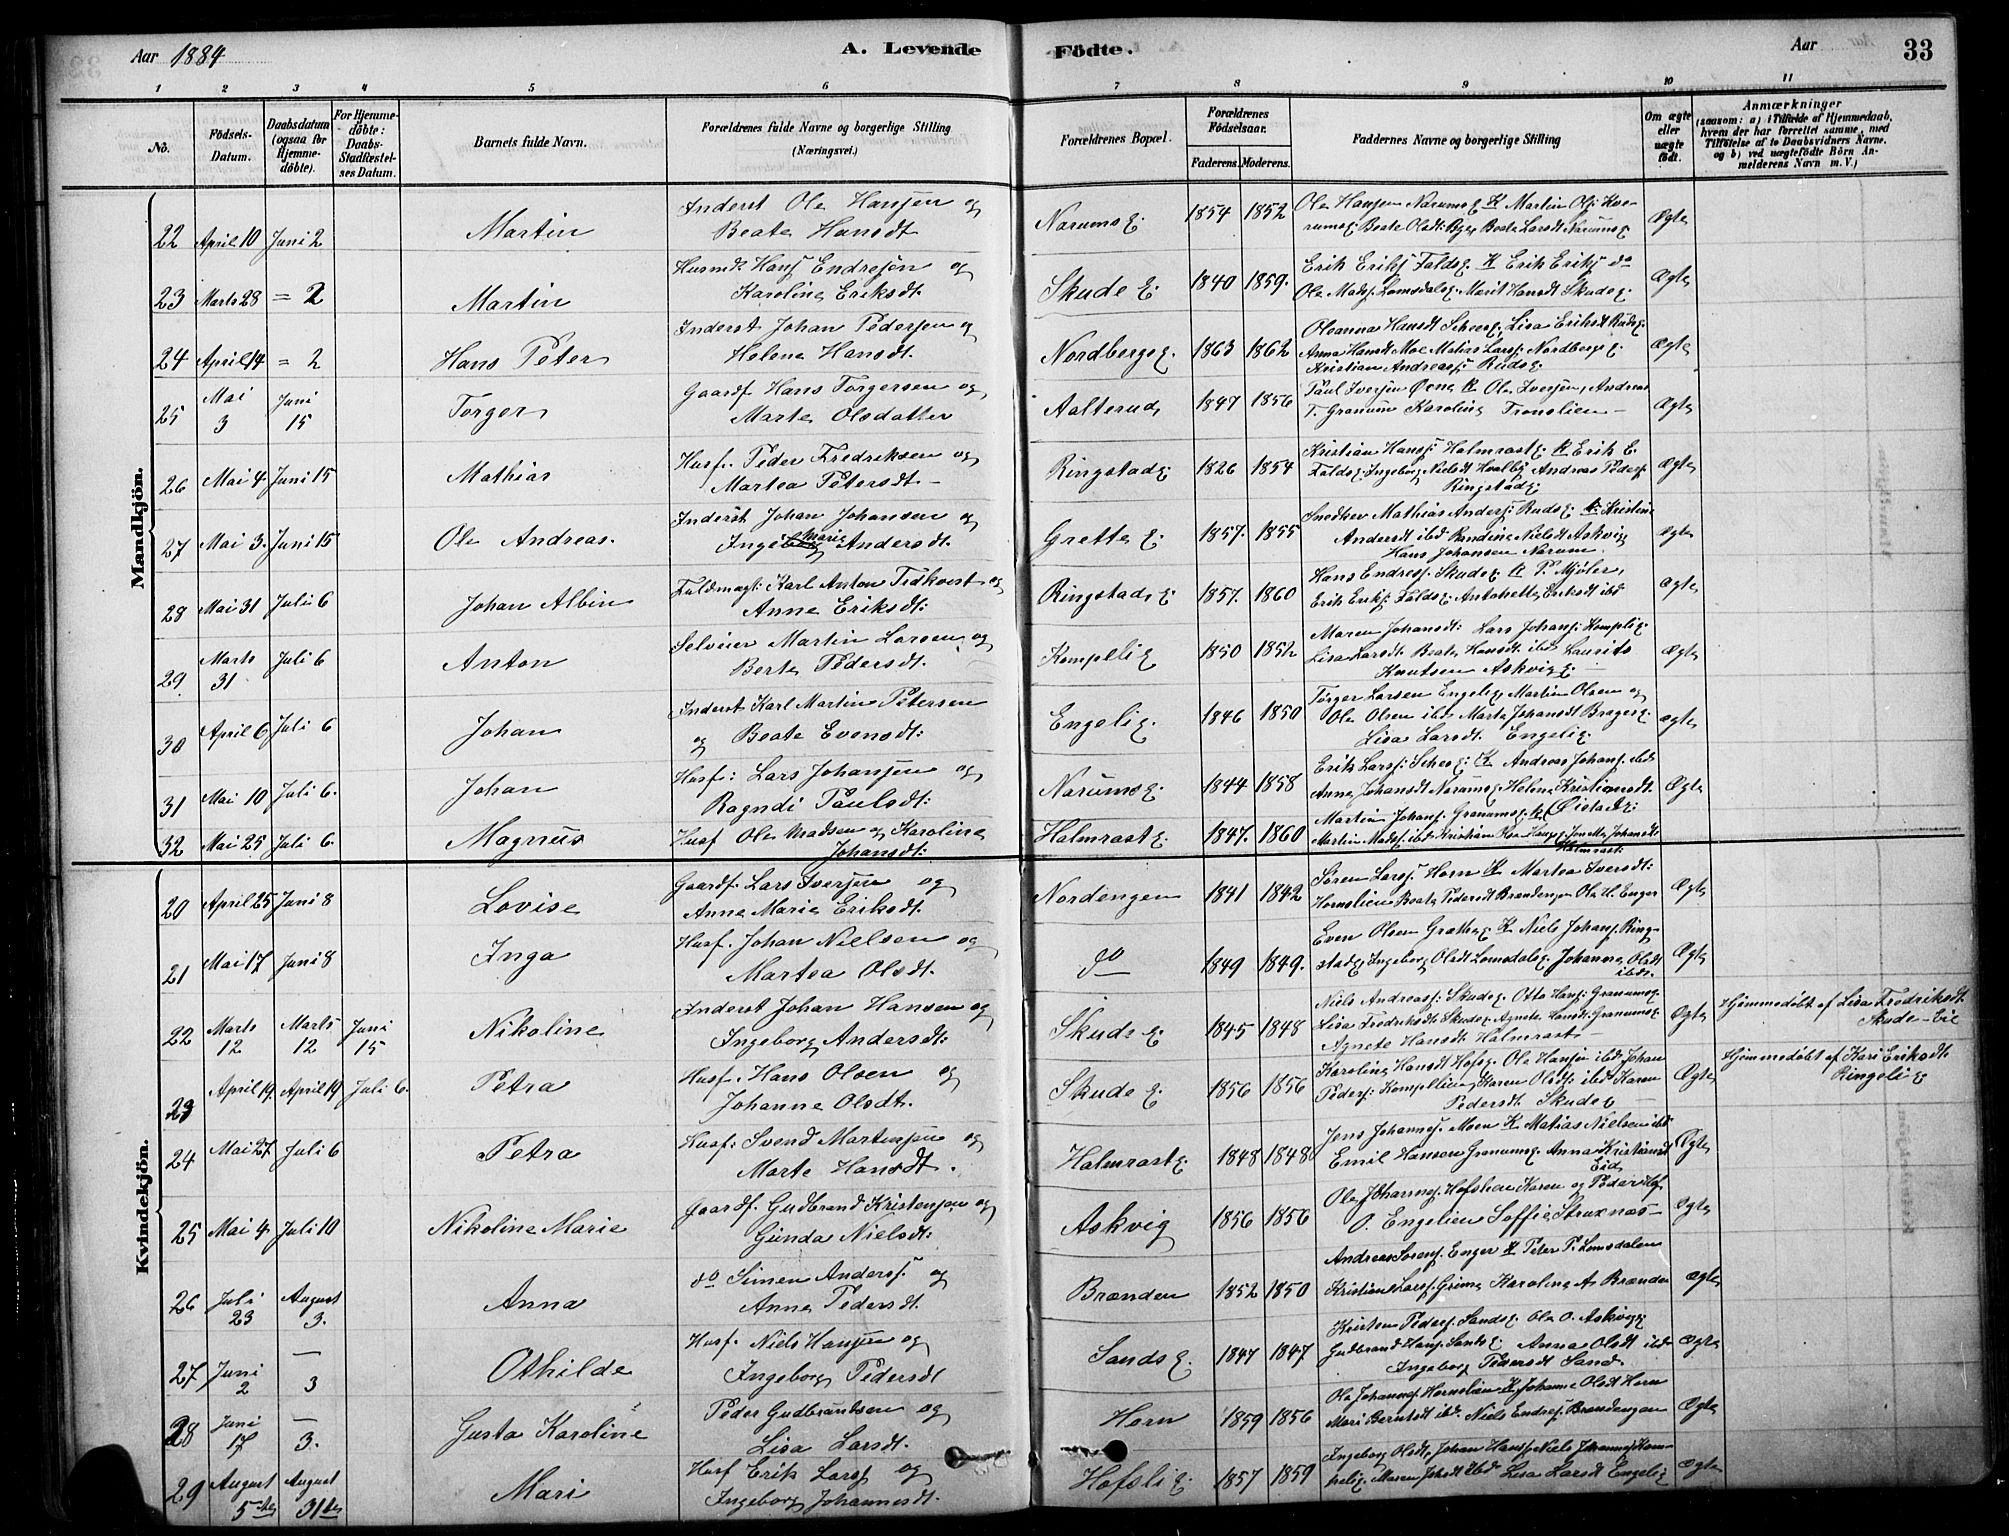 Aar 1884
A. Levende
Födte.
Aar
33
1 2 3 4 5 6 7 8 9 10 11
No.
Födsels-Datum.
Daabsdatum (ogsaa for Hjemme-döbte).
For Hjemme-döbte: Daabs-Stadfæstel-ses Datum.
Barnets fulde Navn.
Forældrenes fulde Navne og borgerlige Stilling (Næringsvei.)
Forældrenes Bopæl.
Forældrenes Födselsaar.
Faderens. Moderens.
Faddernes Navne og borgerlige Stilling
Om ægte eller uægte födt.
Anmærkninger
(saasom: a) i Tilfælde af Hjemmedaab, hvem der har forrettet samme, med Tilföielse af to Daabsvidners Navne, og b) ved uægtefödte Börn Anmelderens Navn m. V.)
Mandkjön.
22 April 10 Juni 2 Martin Inderst Ole Hansen og Beate Hansdt Narumsg. 1854 1852 Ole Hansen Narumsg. Beate Larsdt Narumsg. Ægte
23 Marts 28 = 2 Martin Husmd. Hans Endresen og Karoline Eriksdt. Skude E. 1840 1859. Erik Eriks. Faldsg. K Erik Eriks. do Ole Mads. Lomsdalsg. Marit Hansdt Skudeg. Ægte
24 April 14 = 2 Hans Peter Inderst Johan Pedersen og Helene Hansdt. Nordbergsg. 1863 1862 Oleanna Hansdt Lisa Eriksdt Rudsg. Anna Hansdt Moe Matias Lars. Nordbergsg. Kristian Andreas. Rudsg. Ægte
25 Mai 3 Juni 15 Torger Gaardf. Hans Torgersen og Marte Olsdatter Aalterud 1847 1856 Paul Iversen K Ole Iversen, Andreas T. Granum Karoline Tronslien Ægte
26 Mai 4 Juni 15 Mathias Husf. Peder Fredriksen og Martea Petersdt. Ringstadg. 1826 1854 Kristian Hans. Halmrastg. K Erik E. Faldsg. Ingeborg Nielsdt Hvalby Andreas Peders. Ringstadg. Ægte
27 Mai 3. Juni 15 Ole Andreas. Inderst Johan Johansen og Inge Marie Andersdt. Grette E. 1857. 1855 Snedker Mathias Anders. Rudsg. K Kristine Andersdt ibd Randine Nielsdt Askvig Hans Johansen Narum. Ægte
28 Mai 31 Juli 6 Johan Albin Fuldmægt: Karl Anton Tidkvist og Anne Eriksdt: Ringstadg. 1857. 1860 Hans Endres. Skudeg. K P. Mjøler, Erik Eriks. Faldsg. Antonette Eriksdt ibd Ægte
29 Marts 31 Juli 6 Anton Selveier Martin Larsen og Berte Pedersdt. Kompelig 1850 1852 Maren Johansdt: Lars Johans. Kompelig. Lisa Larsdt Beate Hansdt ibd Laurits Knutsen Askvig Ægte
30 April 6 Juli 6 Johan Inderst Karl Martin Petersen og Beate Evensdt: Engelig. 1846 1850 Torger Larsen Engelig, Martin Olsen og Ole Olsen ibd Marte Johansdt Bragerg. Lisa Larsdt. Engelig. Ægte
31 Mai 10 Juli 6. Johan Husf: Lars Johansen og Ragndi Paulsdt: Narumsg. 1844 1858 Erik Lars. K Andreas Johans. ibd Anne Johansdt Narumsg. Helene Kristiansdt Ægte
32 Mai 25 Juli 6. Magnus Husf Ole Madsen og Karoline Johansdt: Halmrastg. 1847. 1860 Martin Johans. Granumsg. Martin Mads. ibd Jonette Johansdt Halmrast. Ægte
Kvindekjön.
20 April 25 Juni 8 Lovise Gaardf. Lars Iversen og Anne Marie Eriksdt. Nordengen 1841 1842 Søren Lars. Horn K Martea Iversdt: Hornslien Beate Pedersdt Brændengen Ole H. Enger Ægte
21 Mai 17 Juni 8 Inga Husf. Johan Nielsen og Martea Olsdt. do 1849 1849. Even Olsen K Niels Johans. Ringstadg. Ingeborg Olsdt Lomsdalsg. Johanne Olsdt ibdt. Ægte
22 Marts 12 Marts 12 Juni 15 Nikoline Inderst Johan Hansen og Ingeborg Andersdt: Skude E. 1845 1848 Niels Andreas. Skudeg. Otto Hans. Granumsg. Lisa Fredriksdt Skudeg. Agnete Hansdt: Granumsg. Agnete Hansdt Halmrast Ægte Hjemmedøbt af Lisa Fredriksdt Skude-Eie
23 April 19. April 19 Juli 6. Petra Husf. Hans Olsen og Johanne Olsdt. Skude E. 1856 1856 Karoline Hansdt Hofsg. Ole Hansen ibd. Johan Peders: Kompellien Karen Olsdt: ibd Karen Pedersdt Skudeg Ægte Hjemmedøbt af Kari Eriksdt. Ringelig
24 Mai 27 Juli 6 Petra Husf: Svend Martinsen og Marte Hansdt. Halmrastg. 1848 1848 Jens Johannes. Moen K Matias Nielsen ibd Emil Hansen Granumsg. Anna Kristiansdt Eid Ægte
25 Mai 4 Juli 10 Nikoline Marie Gaardf. Gudbrand Kristensen og Gunda Nielsdt: Askvig 1856 1856 Ole Johannes. Hofslien Karen og Peder O. Engelien Soffie Struxnæs Ægte
26 Juli 23 August 3. Anna do Simen Anders. og Anne Pedersdt. Brænden 1852 1850 Andreas Sørens. Enger K Peter P. Lomsdalen Kristian Lars. Grime Karoline A. Brænden Ægte
27 Juni 2 — 3 Othilde Husf. Niels Hansen og Ingeborg Pedersdt Sandsg. 1847 1847 Kristen Peders. Sandsg. Ole O. Askvigg Gudbrand Hans. Sandsg. Anne Olsdt ibd Ingeborg Pedersdt Sand. Ægte
28 Juni 17 — 3. Gusta Karoline Peder Gudbrandsen og Lisa Larsdt. Horn 1859 1856 Ole Johannes. Hornslien K Johanne Olsdt Horn Mari Berntsdt ibd. Niels Endres. Brændengen Ægte
29 August 5te August 31te Mari Husf Erik Lars. og Ingeborg Johannesdt. Hofslig. 1857 1859 Ingeborg Olsdt, Johan Hans. Niels Johannes. Kompelig. Maren Johsdt ibd Lisa Larsdt Engelig Ægte